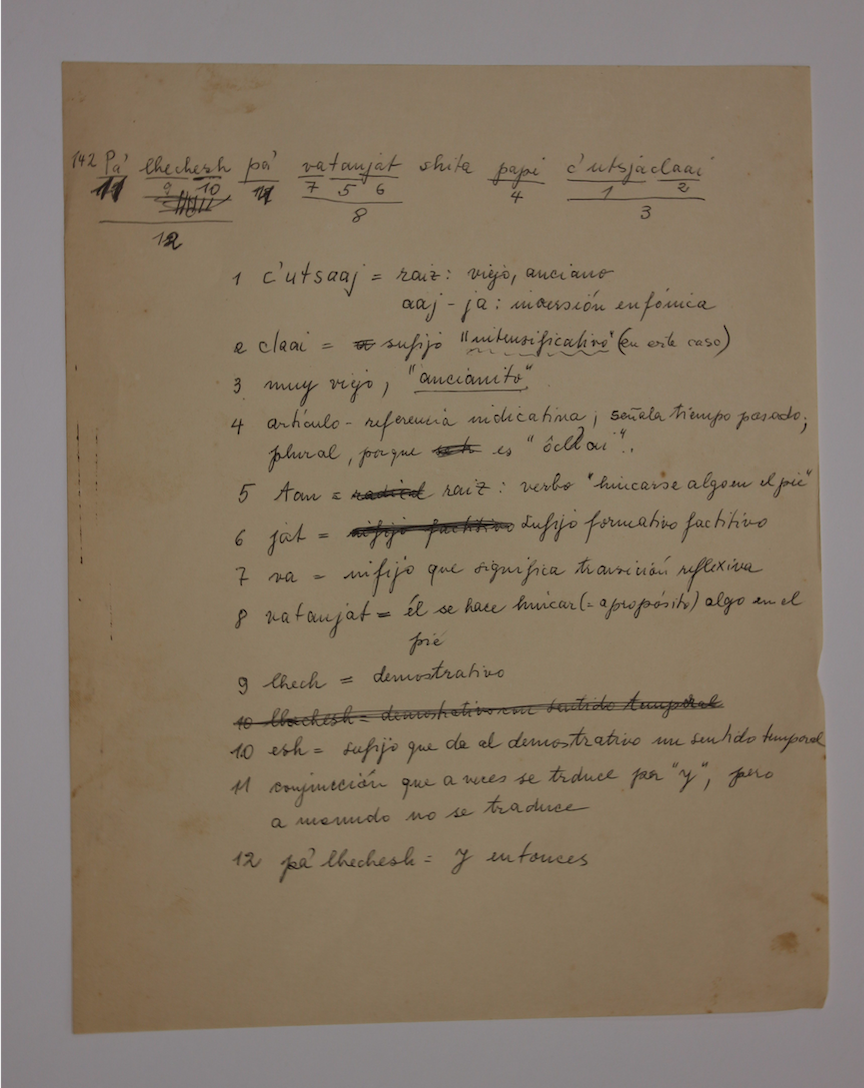 142 Pa' lhechesh pa' vatanjat shita papi c'utsjaclaai
11 9 10 11 7 5 6 4 1 2
12 8 3
1 c'utsaaj = raiz: viejo, anciano
aaj - ja: inversión enfónica
2 claai = sufijo "intensificativo" (en este caso)
3 muy viejo, "ancianito"
4 artículo - referencia indicativa; señala tiempo pasado;
plural, porque es
5 tan = radical raiz: verbo "hincarse algo en el pié"
6 jat = sufijo factitivo sufijo formativo factitivo
7 va = nifijo que significa transición reflexiva
8 vatanjat = él se hace hincar (= apropósito) algo en el
pié
9 lhech = demostrativo
10 lhechesh = demostrativo con sentido temporal
10 esh = sufijo que da al demostrativo un sentido temporal
11 conjunción que a veces se traduce por "y", pero
a menudo no se traduce
12 pa' lhechesh = y entonces